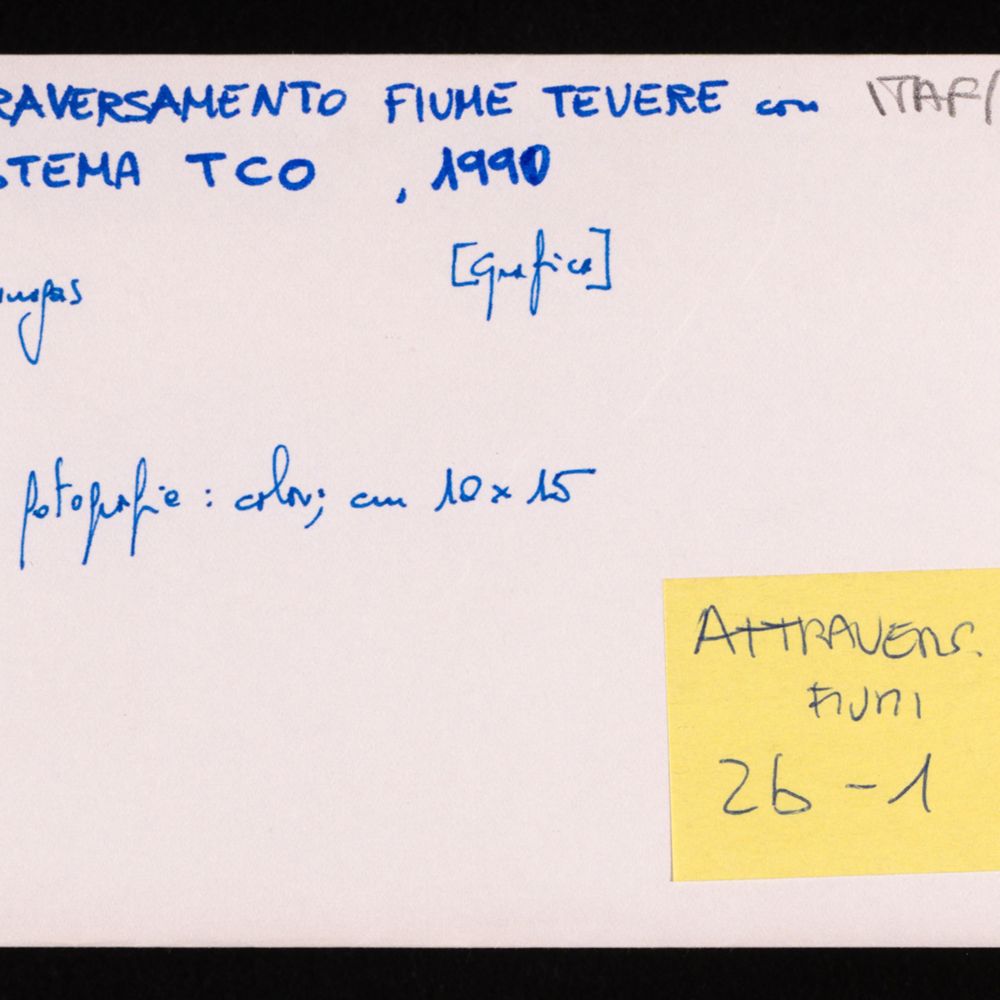 RAVERSAMENTO FIUME TEVERE con ITAF/
STEMA TCO , 1990
[Grafica]
fotografie : color; cm 10 x 15
ATTRAVERS.
FIUMI
26 - 1